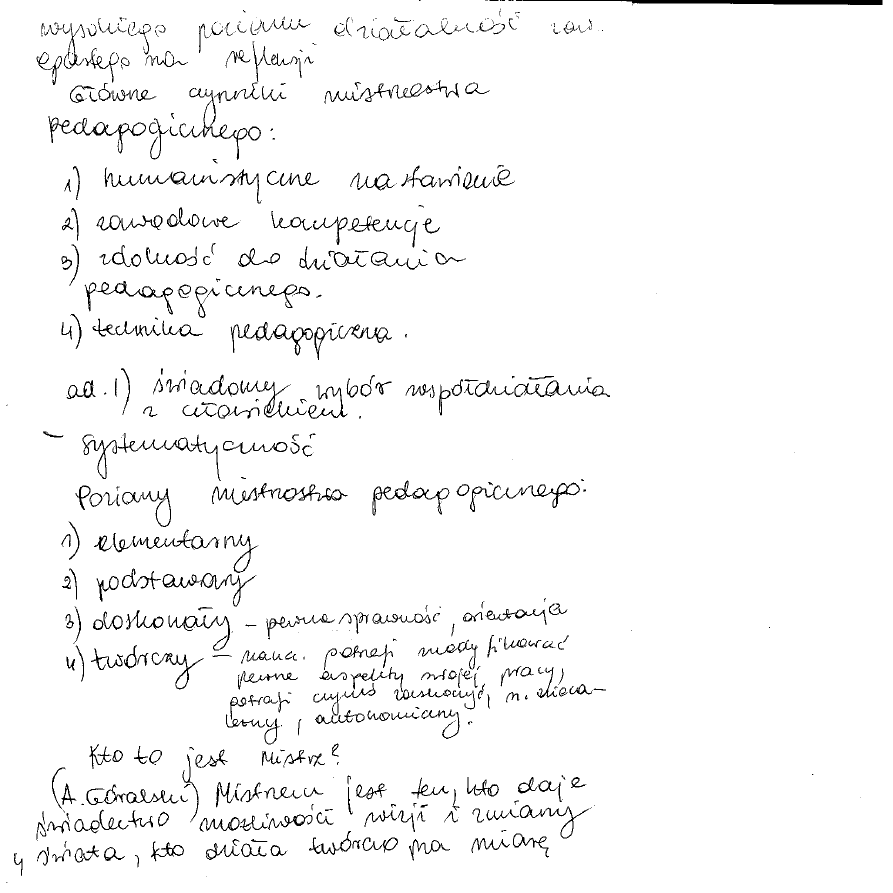 wysokiego poziomu działalność zaw.
opartego na refleksji
Główne czynniki mistrzostwa
pedagogicznego:
1) humanistyczne nastawienie
2) zawodowe kompetencje
3) zdolność do działania
pedagogicznego.
4) technika pedagogiczna.
ad. 1) świadomy wybór współdziałania
z człowiekiem.
– Systematyczność
Poziomy mistrzostwa pedagogicznego:
1) elementarny
2) podstawowy
3) doskonały – pewna sprawność, orientacja
4) twórczy – naucz. potrafi modyfikować
pewne aspekty swojej pracy,
potrafi czymś zaskoczyć, n. nieza-
leżny, autonomiczny.
Kto to jest Mistrz?
(A. Góralski) Mistrzem jest ten, kto daje
świadectwo możliwości wizji i zmiany
świata, kto działa twórczo na miarę